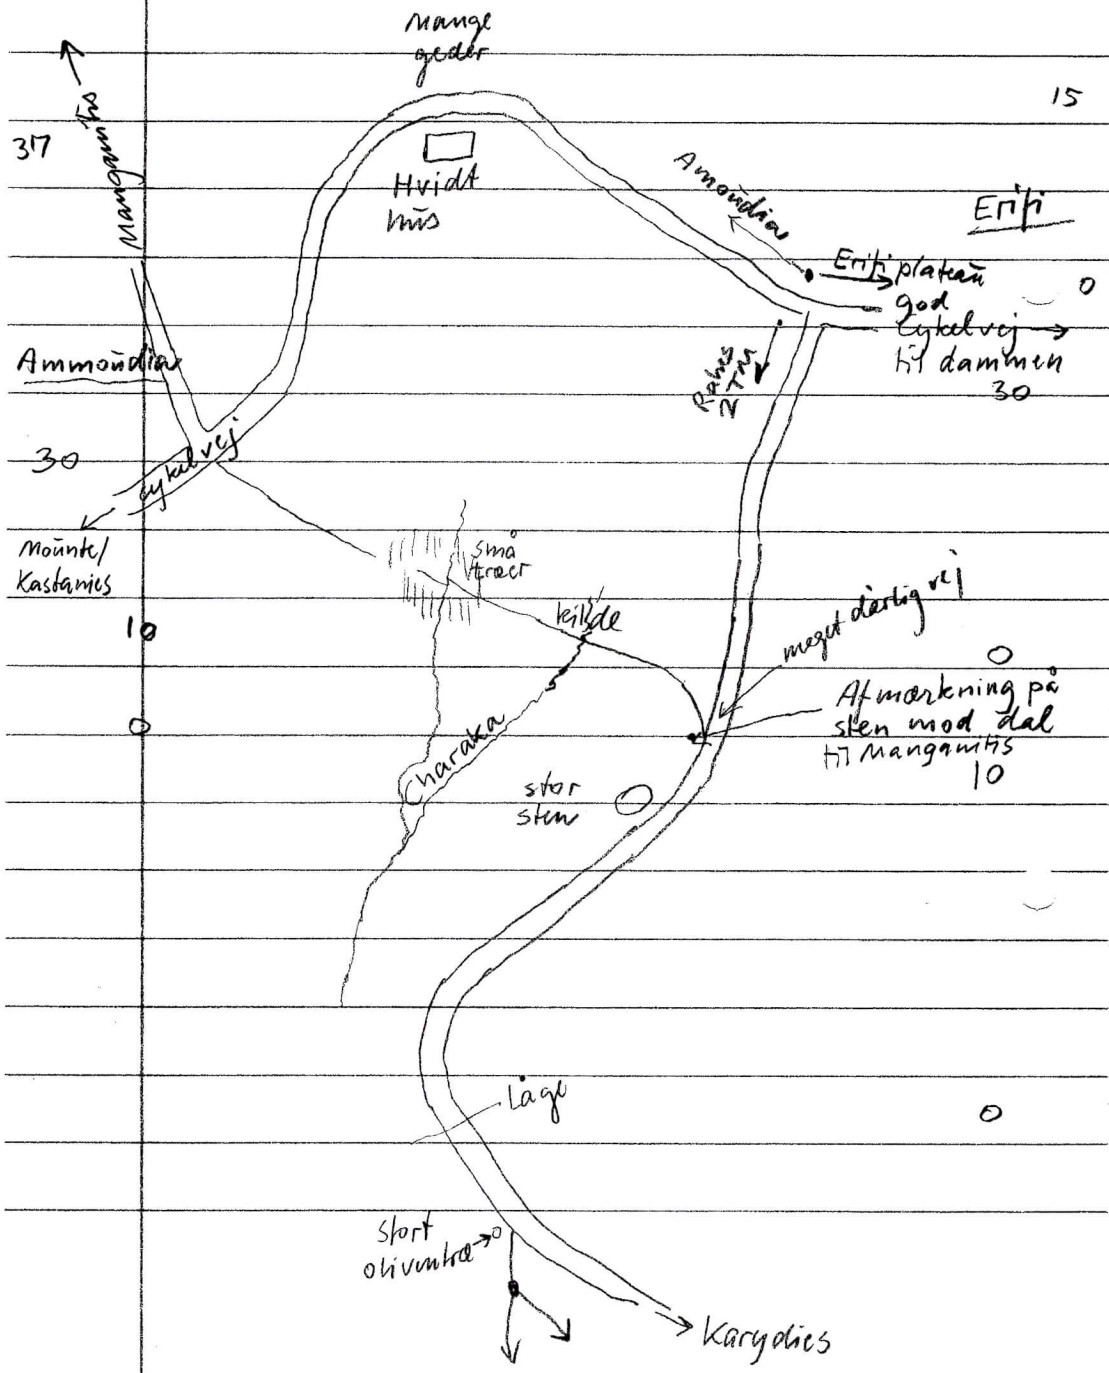 Mange
geder
15
37
Manganitis
Hvidt
hus
Amoudia
Erifi
Erifi plateau
0
god
Cykelvej
til dammen
30
Ammoudia
Rahes
2 Tm
30
cykelvej
Mounte/
Kastanies
små
træer
kilde
10
meget dårlig vej
0
Afmærkning på
sten mod dal
til Manganitis
10
Charaka
stor
sten
Låge
stort
oliventræ
Karydies